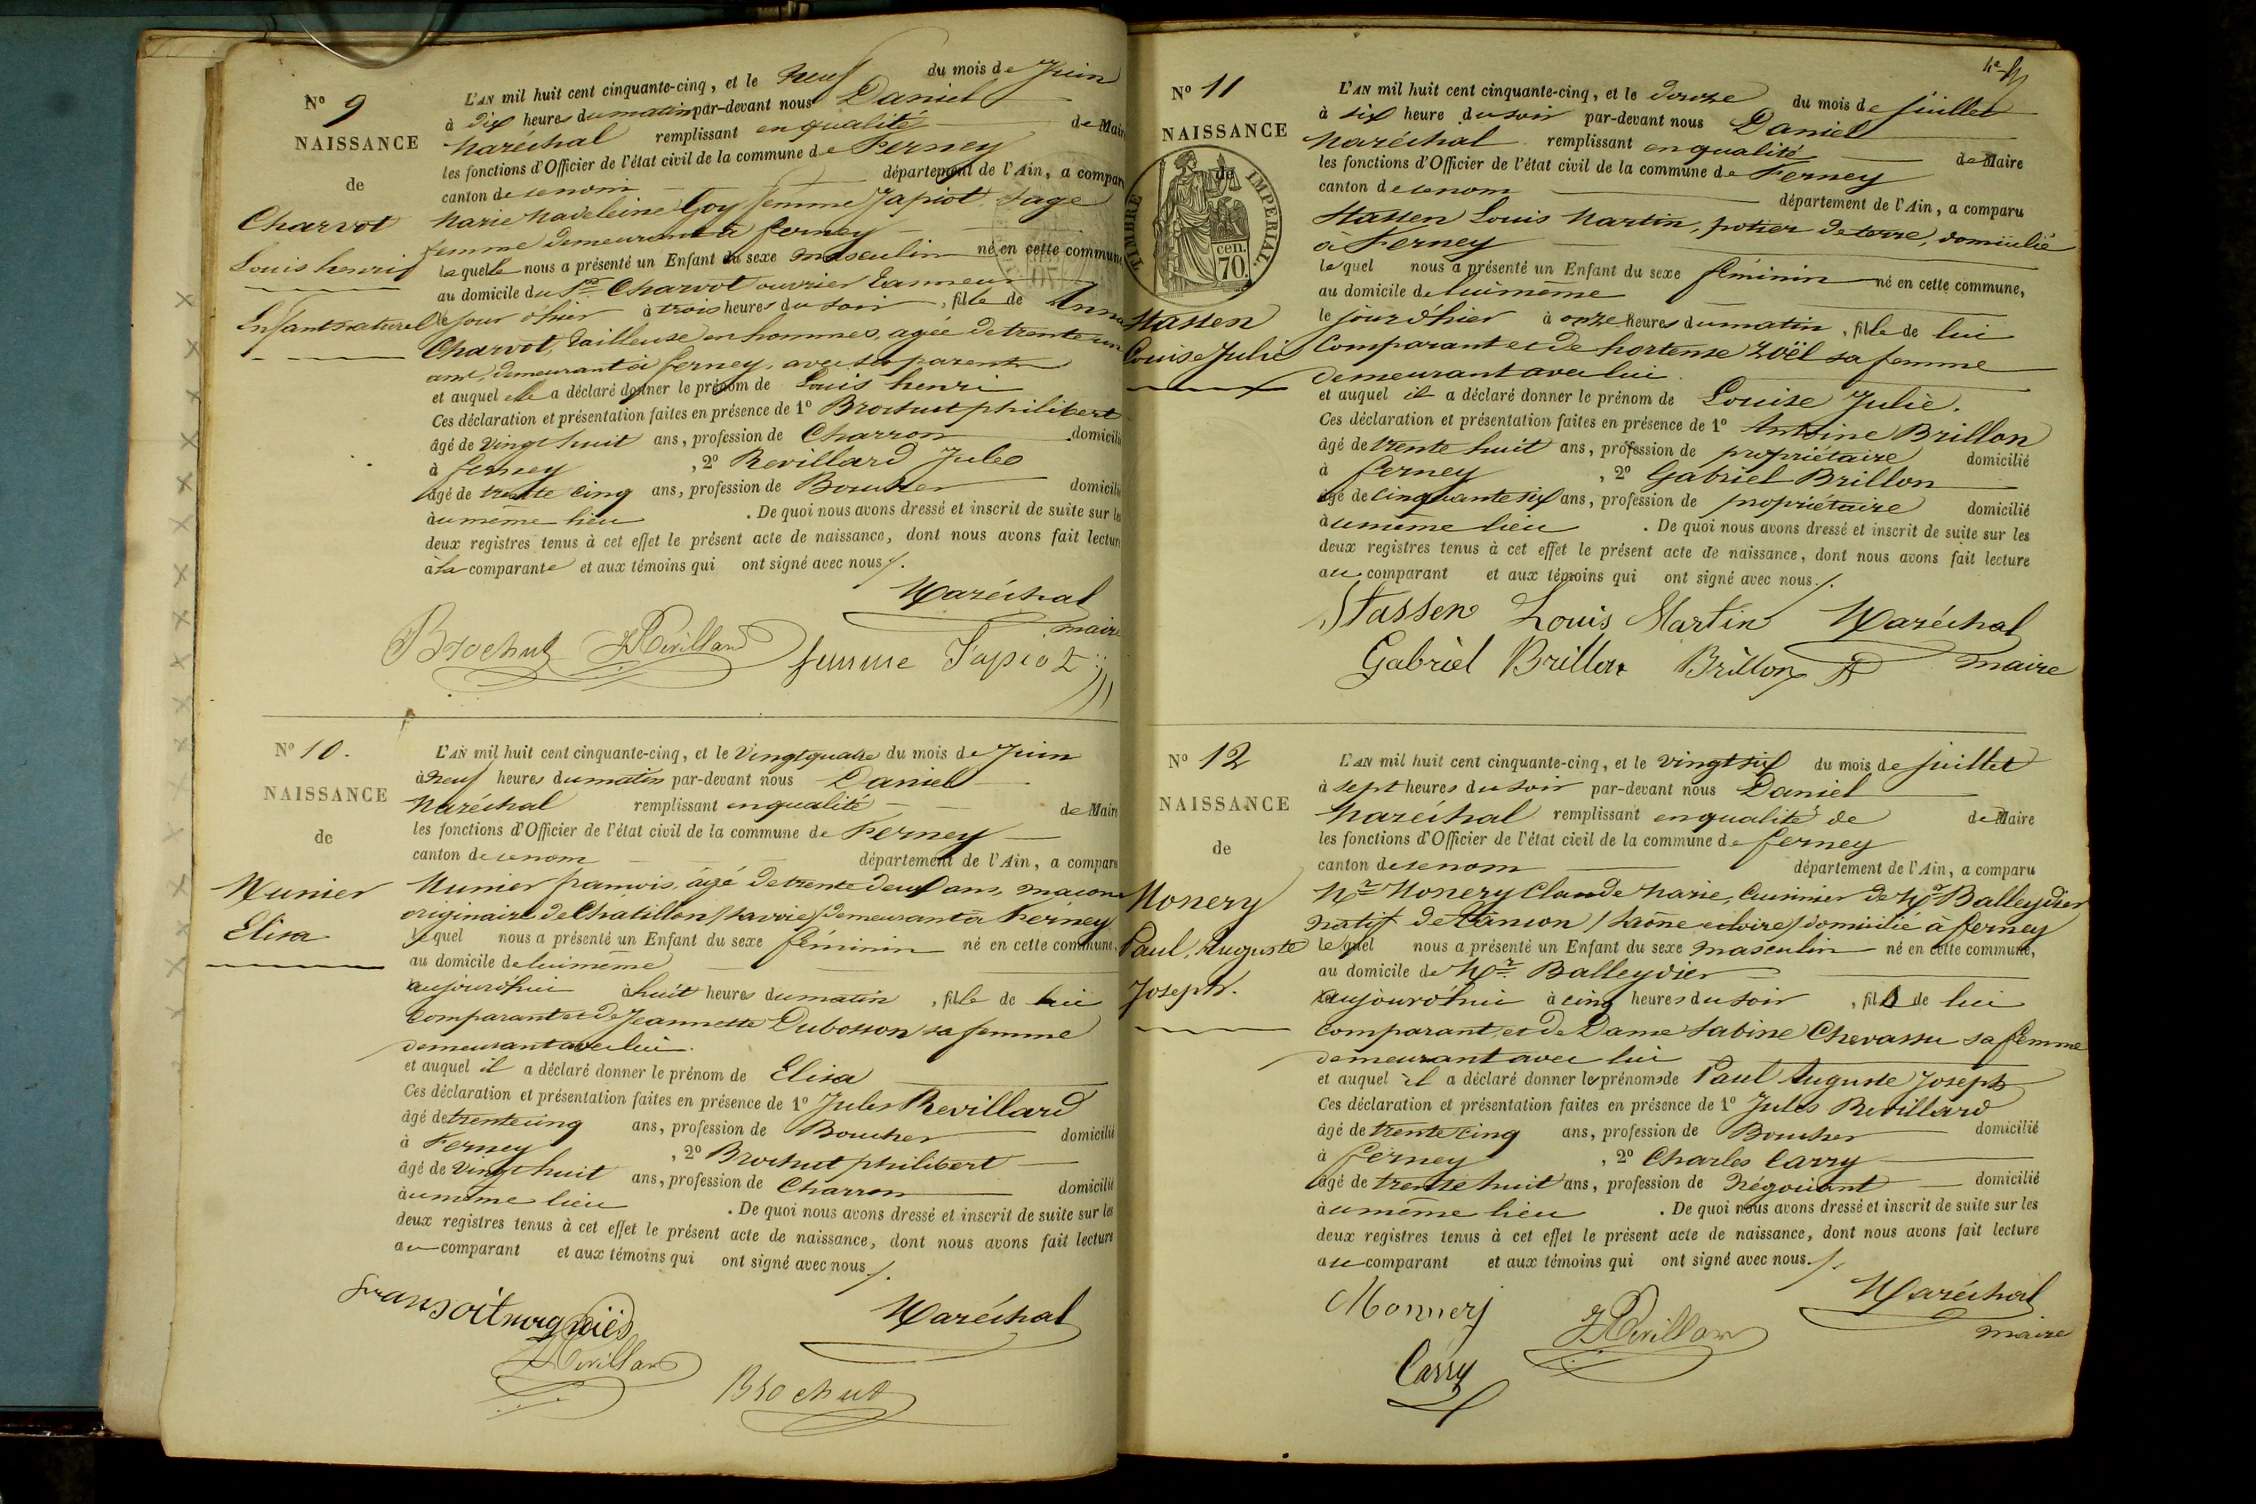 Nº 9
NAISSANCE
de
Charvot
Louis henri
Enfant naturel
L'AN mil huit cent cinquante-cinq, et le neuf du mois de Juin
à dix heures du matin par-devant nous Daniel
Maréchal remplissant en qualité de Maire
les fonctions d'Officier de l'état civil de la commune de Ferney
canton de ce nom département de l'Ain, a comparu
Marie Madeleine Goy femme Japiot Sage
femme demeurant à ferney
laquelle nous a présenté un Enfant du sexe masculin né en cette commune
au domicile du Sr Charvot ouvrier tanneur
le jour d'hier à trois heures du soir, fils de Anna
Charvot, tailleuse en hommes, agée de trente un
ans, demeurant à ferney, avec ses parents
et auquel elle a déclaré donner le prénom de Louis henri
Ces déclaration et présentation faites en présence de 1º Brochut philibert
âgé de vingt huit ans, profession de Charron domicilié
à ferney, 2º Revillard Jules
âgé de trente cinq ans, profession de Boucher domicilié
au même lieu. De quoi nous avons dressé et inscrit de suite sur les
deux registres tenus à cet effet le présent acte de naissance, dont nous avons fait lecture
à la comparante et aux témoins qui ont signé avec nous ./.
Maréchal
maire
Brochut JRevillard femme Japiot
Nº 10.
NAISSANCE
de
Munier
Elisa
L'AN mil huit cent cinquante-cinq, et le vingt quatre du mois de Juin
à neuf heures du matin par-devant nous Daniel
Maréchal remplissant en qualité de Maire
les fonctions d'Officier de l'état civil de la commune de Ferney
canton de ce nom département de l'Ain, a comparu
Munier francois, âgé de trente deux ans, macon
originaire de Chatillon /Savoie/ demeurant à Ferney
lequel nous a présenté un Enfant du sexe féminin né en cette commune,
au domicile de lui même
aujourd'hui à huit heures du matin, fille de lui
comparant et de Jeannette Dubosson sa femme
demeurant avec lui.
et auquel il a déclaré donner le prénom de Elisa
Ces déclaration et présentation faites en présence de 1º Jules Revillard
âgé de trente cinq ans, profession de Boucher domicilié
à Ferney, 2º Brochut philibert
âgé de vingt huit ans, profession de Charron domicilié
au même lieu. De quoi nous avons dressé et inscrit de suite sur les
deux registres tenus à cet effet le présent acte de naissance, dont nous avons fait lecture
au comparant et aux témoins qui ont signé avec nous ./.
Maréchal
JRevillard
Brochut
Nº 11
NAISSANCE
de
TIMBRE IMPERIAL
70 cen.
Stassen
Louise Julie
L'AN mil huit cent cinquante-cinq, et le douze du mois de juillet
à six heure du soir par-devant nous Daniel
Maréchal remplissant en qualité de Maire
les fonctions d'Officier de l'état civil de la commune de Ferney
canton de ce nom département de l'Ain, a comparu
Stassen Louis Martin, potier de terre, domicilié
à Ferney
lequel nous a présenté un Enfant du sexe féminin né en cette commune,
au domicile de lui même
le jour d'hier à onze heures du matin, fille de lui
comparant et de hortense Zoël sa femme
demeurant avec lui
et auquel il a déclaré donner le prénom de Louise Julie.
Ces déclaration et présentation faites en présence de 1º Antoine Brillon
âgé de trente huit ans, profession de propriétaire domicilié
à ferney, 2º Gabriel Brillon
âgé de cinquante six ans, profession de propriétaire domicilié
au même lieu. De quoi nous avons dressé et inscrit de suite sur les
deux registres tenus à cet effet le présent acte de naissance, dont nous avons fait lecture
au comparant et aux témoins qui ont signé avec nous ./.
Stassen Louis Martin Maréchal
Gabriel Brillon Brillon A maire
Nº 12
NAISSANCE
de
Monery
Paul, Auguste
Joseph.
L'AN mil huit cent cinquante-cinq, et le vingt six du mois de juillet
à sept heures du soir par-devant nous Daniel
Maréchal remplissant en qualité de de Maire
les fonctions d'Officier de l'état civil de la commune de ferney
canton de ce nom département de l'Ain, a comparu
Mr Monery Claude Marie, Cuisinier de Mr Balleydier
natif de /Saône et Loire/ domicilié à ferney
lequel nous a présenté un Enfant du sexe masculin né en cette commune,
au domicile de Mr Balleydier
aujourd'hui à cinq heures du soir, fils de lui
comparant, et de Dame Sabine Chevassu sa femme
demeurant avec lui
et auquel il a déclaré donner les prénoms de Paul Auguste Joseph
Ces déclaration et présentation faites en présence de 1º Jules Revillard
âgé de trente cinq ans, profession de Boucher domicilié
à ferney, 2º Charles Carry
âgé de trente huit ans, profession de Négociant domicilié
au même lieu. De quoi nous avons dressé et inscrit de suite sur les
deux registres tenus à cet effet le présent acte de naissance, dont nous avons fait lecture
au comparant et aux témoins qui ont signé avec nous ./.
Monnery JRevillard Maréchal
Carry maire